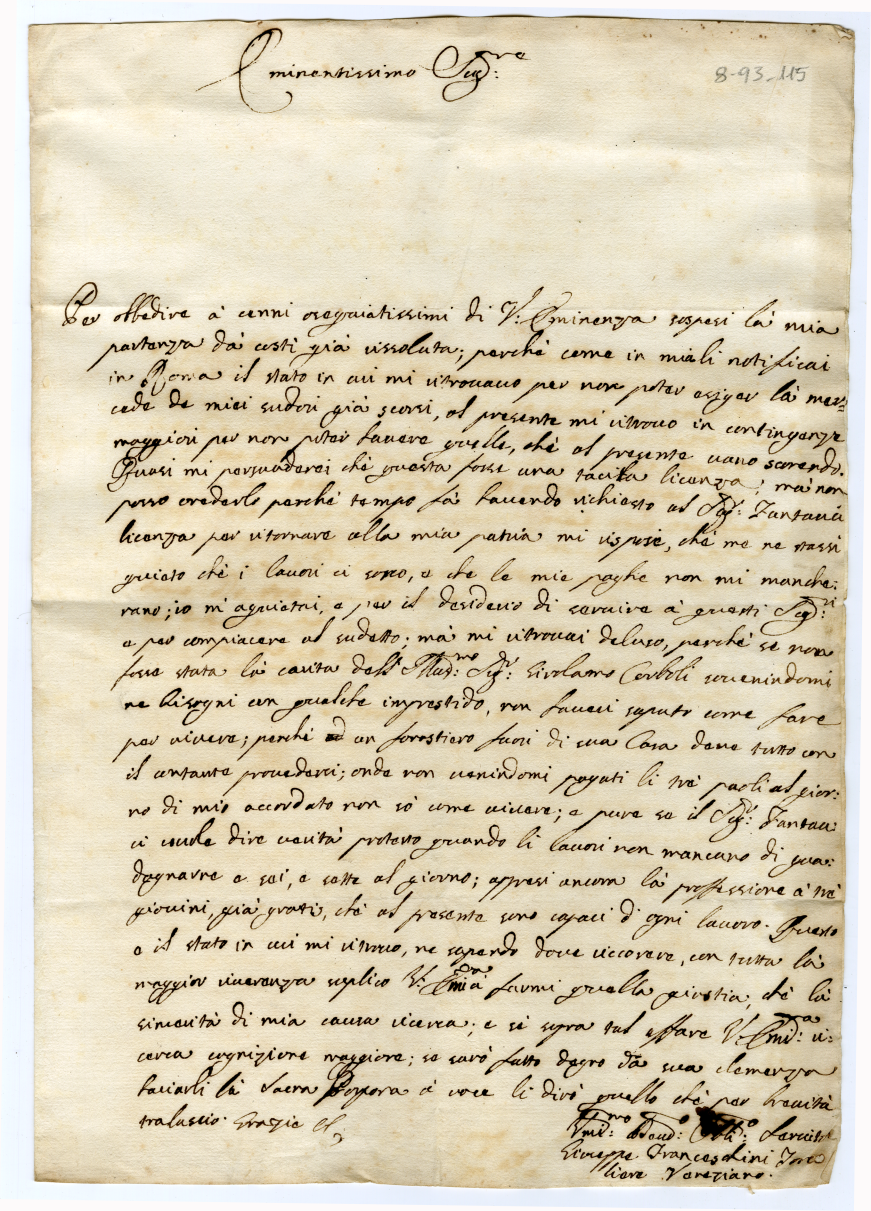 Eminentissimo Sig:re
8-93-115
Per obbedire à cenni ossequiatissimi di V: Eminenza sospesi là mia
partenza dà costi già rissoluta; perché come in miali notificai
in Roma il stato in cui mi ritrovavo per non poter esiger là mer:
cede de miei sudori già scorsi, al presente mi ritrovo in contingenze
maggiori per non poter havere quelle, chè al presente vano scorendo.
Quasi mi persuaderei chè questa fosse una tacita licenza; mà non
posso crederlo perché tempo fà havendo richiesto al Sig:r Fantavii
licenza per ritornare alla mia patria mi rispose, chè me ne stassi
quieto chè i lavori ci sono, e che le mie paghe non mi manche:
rano; io m'aquietai, e per il desiderio di servire à questi Sig:ri
e per compiacere al sudetto; mà mi ritrovai deluso, perché se non
fosse stata là carita dell' Illus:mo Sig:r Girolamo Corboli sovenindomi
ne bisogni con qualche imprestido, non havevi saputo come fare
per vivere; perché ad un forastiero fuori di sua Casa deve tutto con
il contante provederci; onde non venindomi pagati li trè paoli al gior:
no di mio accordato non sò come vivere; e pure se il Sig:r Fantavi
ci vuole dire verità protesto quando li lavori non mancano di gua:
dagnarne e sei, e sette al giorno; appresi ancora là proffessione à trè
giovini, già grati, chè al presente sono capaci d'ogni lavoro. Questo
e il stato in cui mi ritrovo, ne sapendo dove riccorere, con tutta là
maggior riverenza suplico V: Em:za farmi quella giustia, chè là
sincerità di mia causa ricerca; e sè sopra tal affare V: Em:za ri:
cerca cognizione maggiore; se sarò fatto degno dà sua clemenza
baciarli là Sacra Porpora à voce li dirò quello chè per brevità
tralassio. Grazie &
Vmil:mo Deud:o Obli:o Servit:e
Giuseppe Franceschini Torco
liere Veneziano.